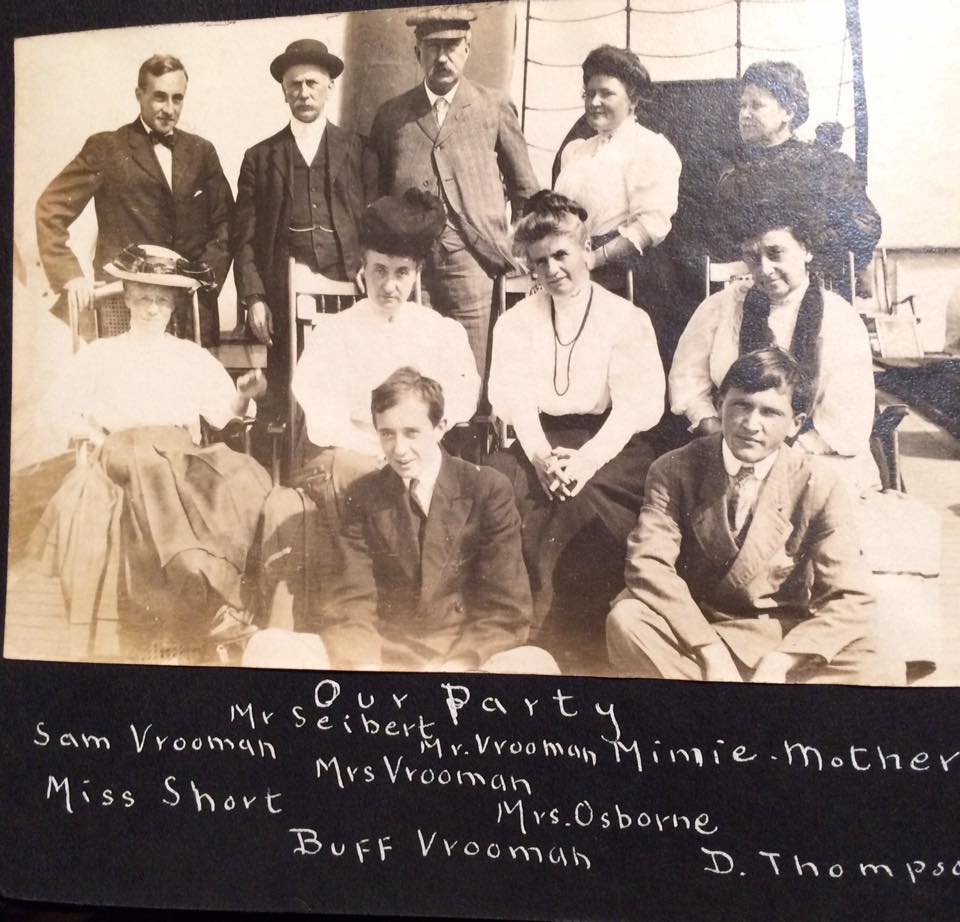 Our Party
Mr Seibert
Sam Vrooman Mr. Vrooman Minnie - Mother
Mrs Vrooman
Miss Short
Mrs. Osborne
Buff Vrooman D. Thompso